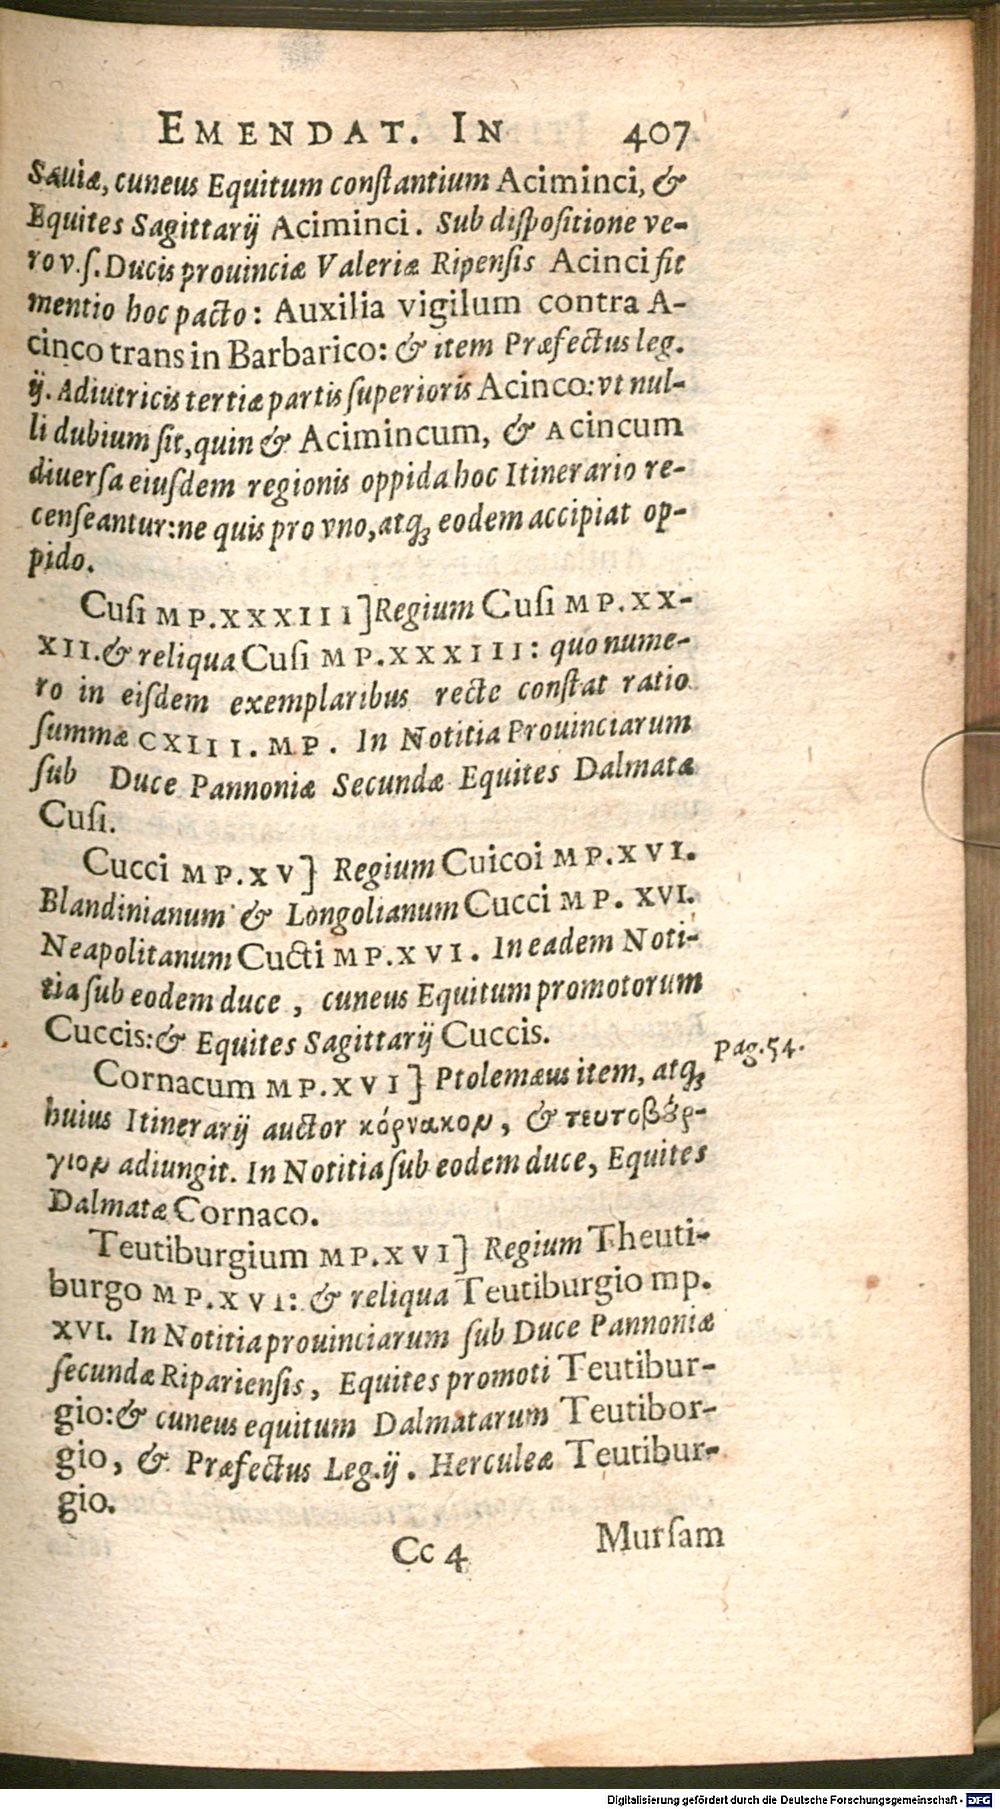 EMENDAT. IN 407
Sauiæ, cuneus Equitum conſtantium Aciminci, &
Equites Sagittarij Aciminci. Sub diſpoſitione ve-
ro v.ſ. Ducis prouinciæ Valeriæ Ripenſis Acinci fit
mentio hoc pacto: Auxilia vigilum contra A-
cinco trans in Barbarico: & item Præfectus leg.
ij. Adiutricis tertiæ partis ſuperioris Acinco: vt nul-
li dubium ſit, quin & Acimincum, & Acincum
diuerſa eiuſdem regionis oppida hoc Itinerario re-
cenſeantur: ne quis pro vno, atq; eodem accipiat op-
pido.
Cuſi MP. XXXIII] Regium Cuſi MP. XX-
XII. & reliqua Cuſi MP. XXXIII: quo nume-
ro in eiſdem exemplaribus recte conſtat ratio
ſummæ CXIII. MP. In Notitia Prouinciarum
ſub Duce Pannoniæ Secundæ Equites Dalmatæ
Cuſi.
Cucci MP. XV] Regium Cuicoi MP. XVI.
Blandinianum & Longolianum Cucci MP. XVI.
Neapolitanum Cucti MP. XVI. In eadem Noti-
tia ſub eodem duce, cuneus Equitum promotorum
Cuccis: & Equites Sagittarij Cuccis.
Cornacum MP. XVI] Ptolemæus item, atq; pag. 54.
huius Itinerarij auctor κόρνακον, & τευτοβέρ-
γιον adiungit. In Notitia ſub eodem duce, Equites
Dalmatæ Cornaco.
Teutiburgium MP. XVI] Regium Theuti-
burgo MP. XVI: & reliqua Teutiburgio mp.
XVI. In Notitia prouinciarum ſub Duce Pannoniæ
ſecundæ Ripariensis, Equites promoti Teutibur-
gio: & cuneus equitum Dalmatarum Teutibor-
gio, & Præfectus Leg. ij. Herculeæ Teutibur-
gio.
Cc 4 Murſam
Digitalisierung gefördert durch die Deutsche Forschungsgemeinschaft - DFG